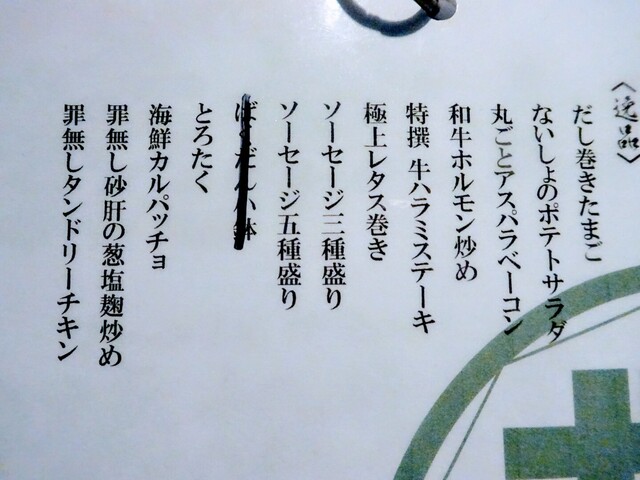 〈逸品〉
だし巻きたまご
ないしょのポテトサラダ
丸ごとアスパラベーコン
和牛ホルモン炒め
特撰 牛ハラミステーキ
極上レタス巻き
ソーセージ三種盛り
ソーセージ五種盛り
ばくだん小鉢
とろたく
海鮮カルパッチョ
罪無し砂肝の葱塩麹炒め
罪無しタンドリーチキン